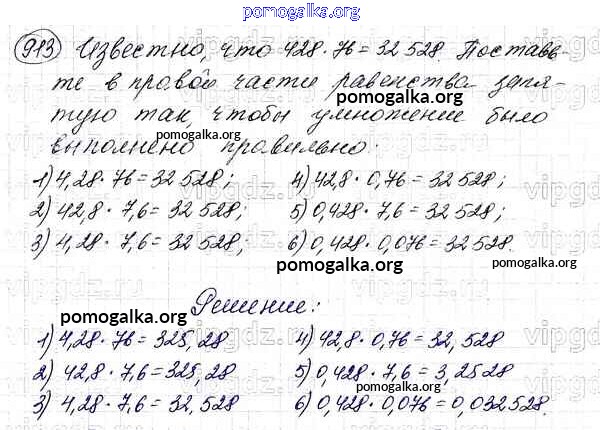 pomogalka.org
913 Известно, что 428 · 76 = 32 528. Поставь-
те в правой части равенства запя-
тую так, чтобы умножение было
выполнено правильно:
pomogalka.org
pomogalka.org
pomogalka.org
1) 4,28 · 76 = 32 528; 4) 42,8 · 0,76 = 32 528;
2) 42,8 · 7,6 = 32 528; 5) 0,428 · 7,6 = 32 528;
3) 4,28 · 7,6 = 32 528; 6) 0,428 · 0,076 = 32 528.
pomogalka.org
pomogalka.org
pomogalka.org
pomogalka.org
Решение:
pomogalka.org
1) 4,28 · 76 = 325,28 4) 42,8 · 0,76 = 32,528
2) 42,8 · 7,6 = 325,28 5) 0,428 · 7,6 = 3,2528
3) 4,28 · 7,6 = 32,528 6) 0,428 · 0,076 = 0,032528.
pomogalka.org
pomogalka.org